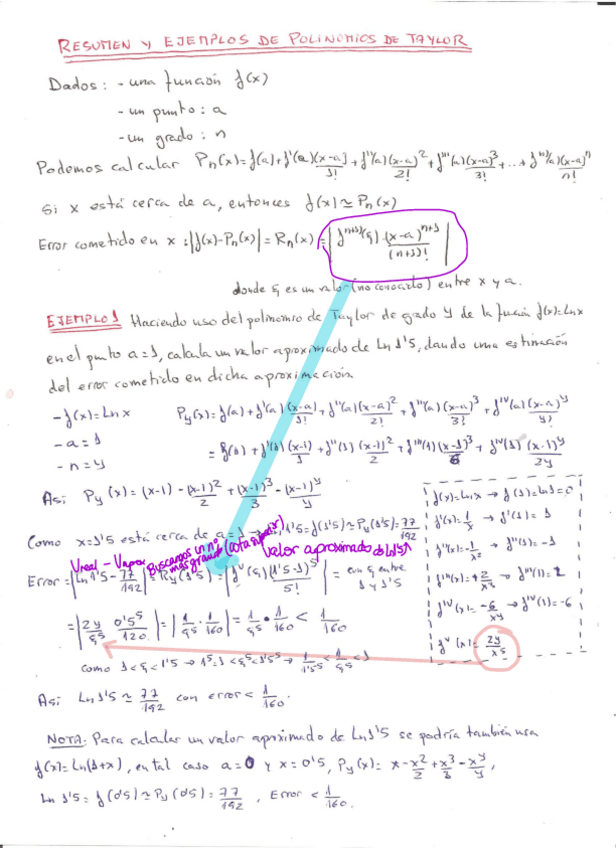 RESUMEN Y EJEMPLOS DE POLINOMIOS DE TAYLOR
Dados: - una función f(x)
- un punto: a
- un grado: n
Podemos calcular Pn(x) = f(a) + f'(a)(x-a)/1! + f''(a)(x-a)²/2! + f'''(a)(x-a)³/3! + ... + fⁿ⁾(a)(x-a)ⁿ/n!
Si x está cerca de a, entonces f(x) ≃ Pn(x)
Error cometido en x: |f(x)-Pn(x)| = Rn(x) = |fⁿ⁺¹⁾(ξ)·(x-a)ⁿ⁺¹/(n+1)!|
donde ξ es un valor (no conocido) entre x y a.
EJEMPLO 1 Haciendo uso del polinomio de Taylor de grado 4 de la función f(x)=Lnx
en el punto a=1, calcula un valor aproximado de Ln 1'5, dando una estimación
del error cometido en dicha aproximación
- f(x) = Lnx
- a = 1
- n = 4
P4(x) = f(a) + f'(a)(x-a)/1! + f''(a)(x-a)²/2! + f'''(a)(x-a)³/3! + fᴵⱽ(a)(x-a)⁴/4!
= f(1) + f'(1)(x-1)/1 + f''(1)(x-1)²/2 + f'''(1)(x-1)³/6 + fᴵⱽ(1)(x-1)⁴/24
Asi P4(x) = (x-1) - (x-1)²/2 + (x-1)³/3 - (x-1)⁴/4
Como x=1'5 está cerca de a=1 → Ln 1'5 = f(1'5) ≃ P4(1'5) = 77/192
Vreal - Vaprox
Buscamos un nº más grande (cota superior)
valor aproximado de Ln 1'5
Error = |Ln 1'5 - 77/192| = R4(1'5) = |fⱽ(ξ)(1'5-1)⁵/5!| = con ξ entre 1 y 1'5
= |24/ξ⁵ · 0'5⁵/120| = |1/ξ⁵ · 1/160| = 1/ξ⁵ · 1/160 < 1/160
como 1<ξ<1'5 → 1⁵=1<ξ⁵<1'5⁵ → 1/1'5⁵ < 1/ξ⁵ < 1
f(x)=Lnx → f(1)=Ln1=0
f'(x)=1/x → f'(1)=1
f''(x)=-1/x² → f''(1)=-1
f'''(x)=+2/x³ → f'''(1)=2
fᴵⱽ(x)=-6/x⁴ → fᴵⱽ(1)=-6
fⱽ(x)=24/x⁵
Asi Ln 1'5 ≃ 77/192 con error < 1/160.
NOTA: Para calcular un valor aproximado de Ln 1'5 se podría también usar
f(x)=Ln(1+x), en tal caso a=0 y x=0'5, P4(x) = x - x²/2 + x³/3 - x⁴/4,
Ln 1'5 = f(0'5) ≃ P4(0'5) = 77/192, Error < 1/160.